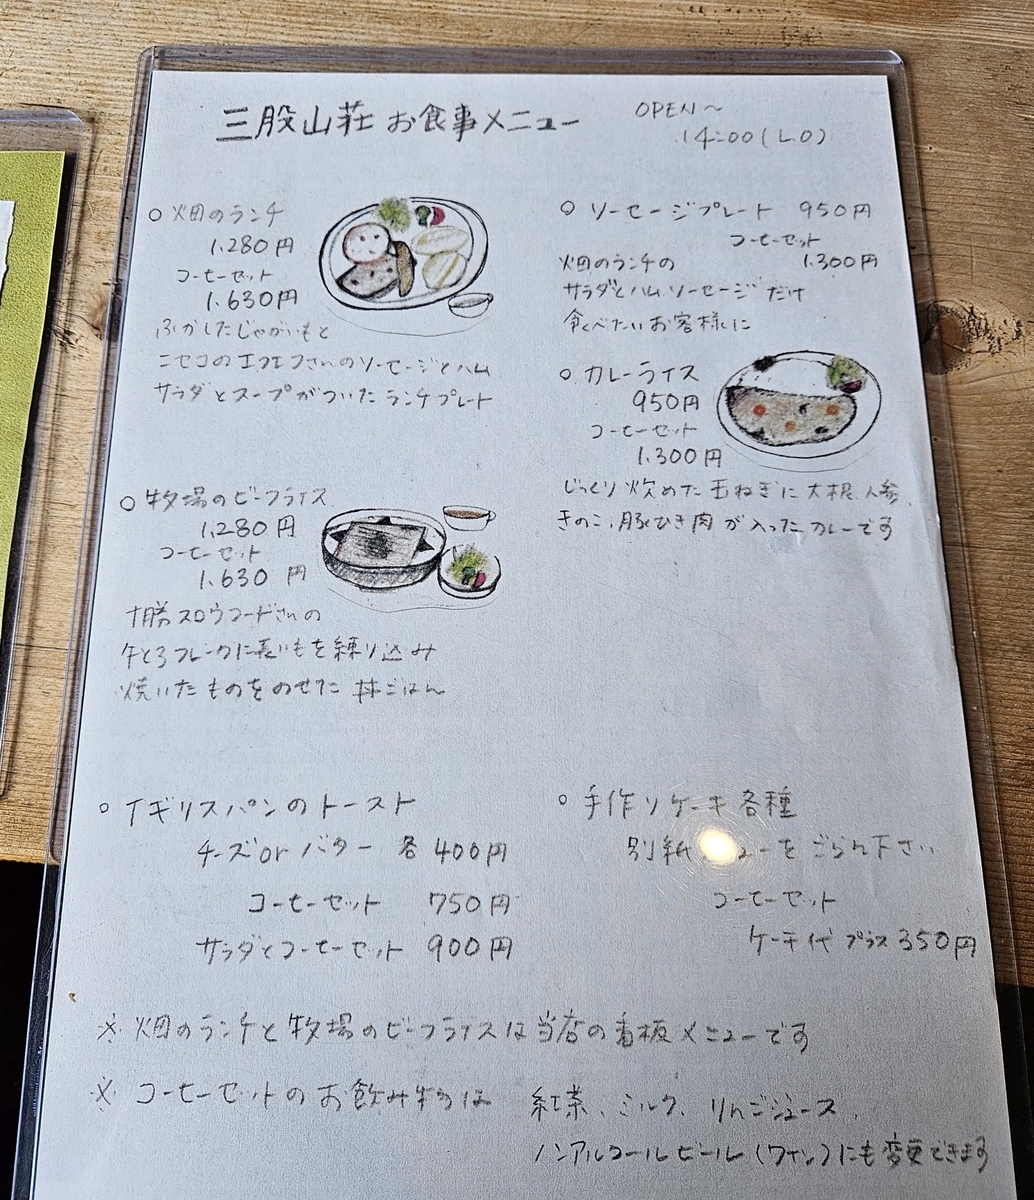 三股山荘 お食事メニュー
OPEN～
14:00(L.O)
○ 畑のランチ
1.280円
コーヒーセット
1.630円
ふかしたじゃがいもと
ニセコのエフエフさんのソーセージとハム
サラダとスープがついたランチプレート
○ 牧場のビーフライス
1.280円
コーヒーセット
1.630円
十勝スロウフードさんの
牛とろフレークに長いもを練り込み
焼いたものをのせた 丼ごはん
○ ソーセージプレート 950円
コーヒーセット
1.300円
畑のランチの
サラダとハムソーセージだけ
食べたいお客様に
○ カレーライス
950円
コーヒーセット
1.300円
じっくり炒めた玉ねぎに大根、人参、
きのこ、豚ひき肉が入ったカレーです
○ イギリスパンのトースト
チーズorバター 各400円
コーヒーセット 750円
サラダとコーヒーセット 900円
○ 手作りケーキ各種
別紙ニューをごらん下さい
コーヒーセット
ケーキ代プラス350円
※ 畑のランチと牧場のビーフライスは当店の看板メニューです
※ コーヒーセットのお飲み物は 紅茶、ミルク、りんごジュース、
ノンアルコールビール(ワイン)にも変更できます